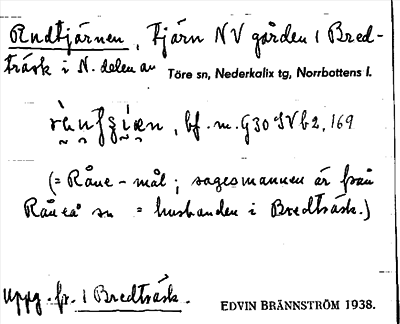 Rudtjärnen, tjärn NV gården 1 Bred-
träsk i N. delen av Töre sn, Nederkalix tg, Norrbottens l.
bf. m. G30 IV b2, 169
(= Råne-mål; sagesmannen är från
Råneå sn = husbonden i Bredträsk.)
Uppg. fr. 1 Bredträsk. EDVIN BRÄNNSTRÖM 1938.